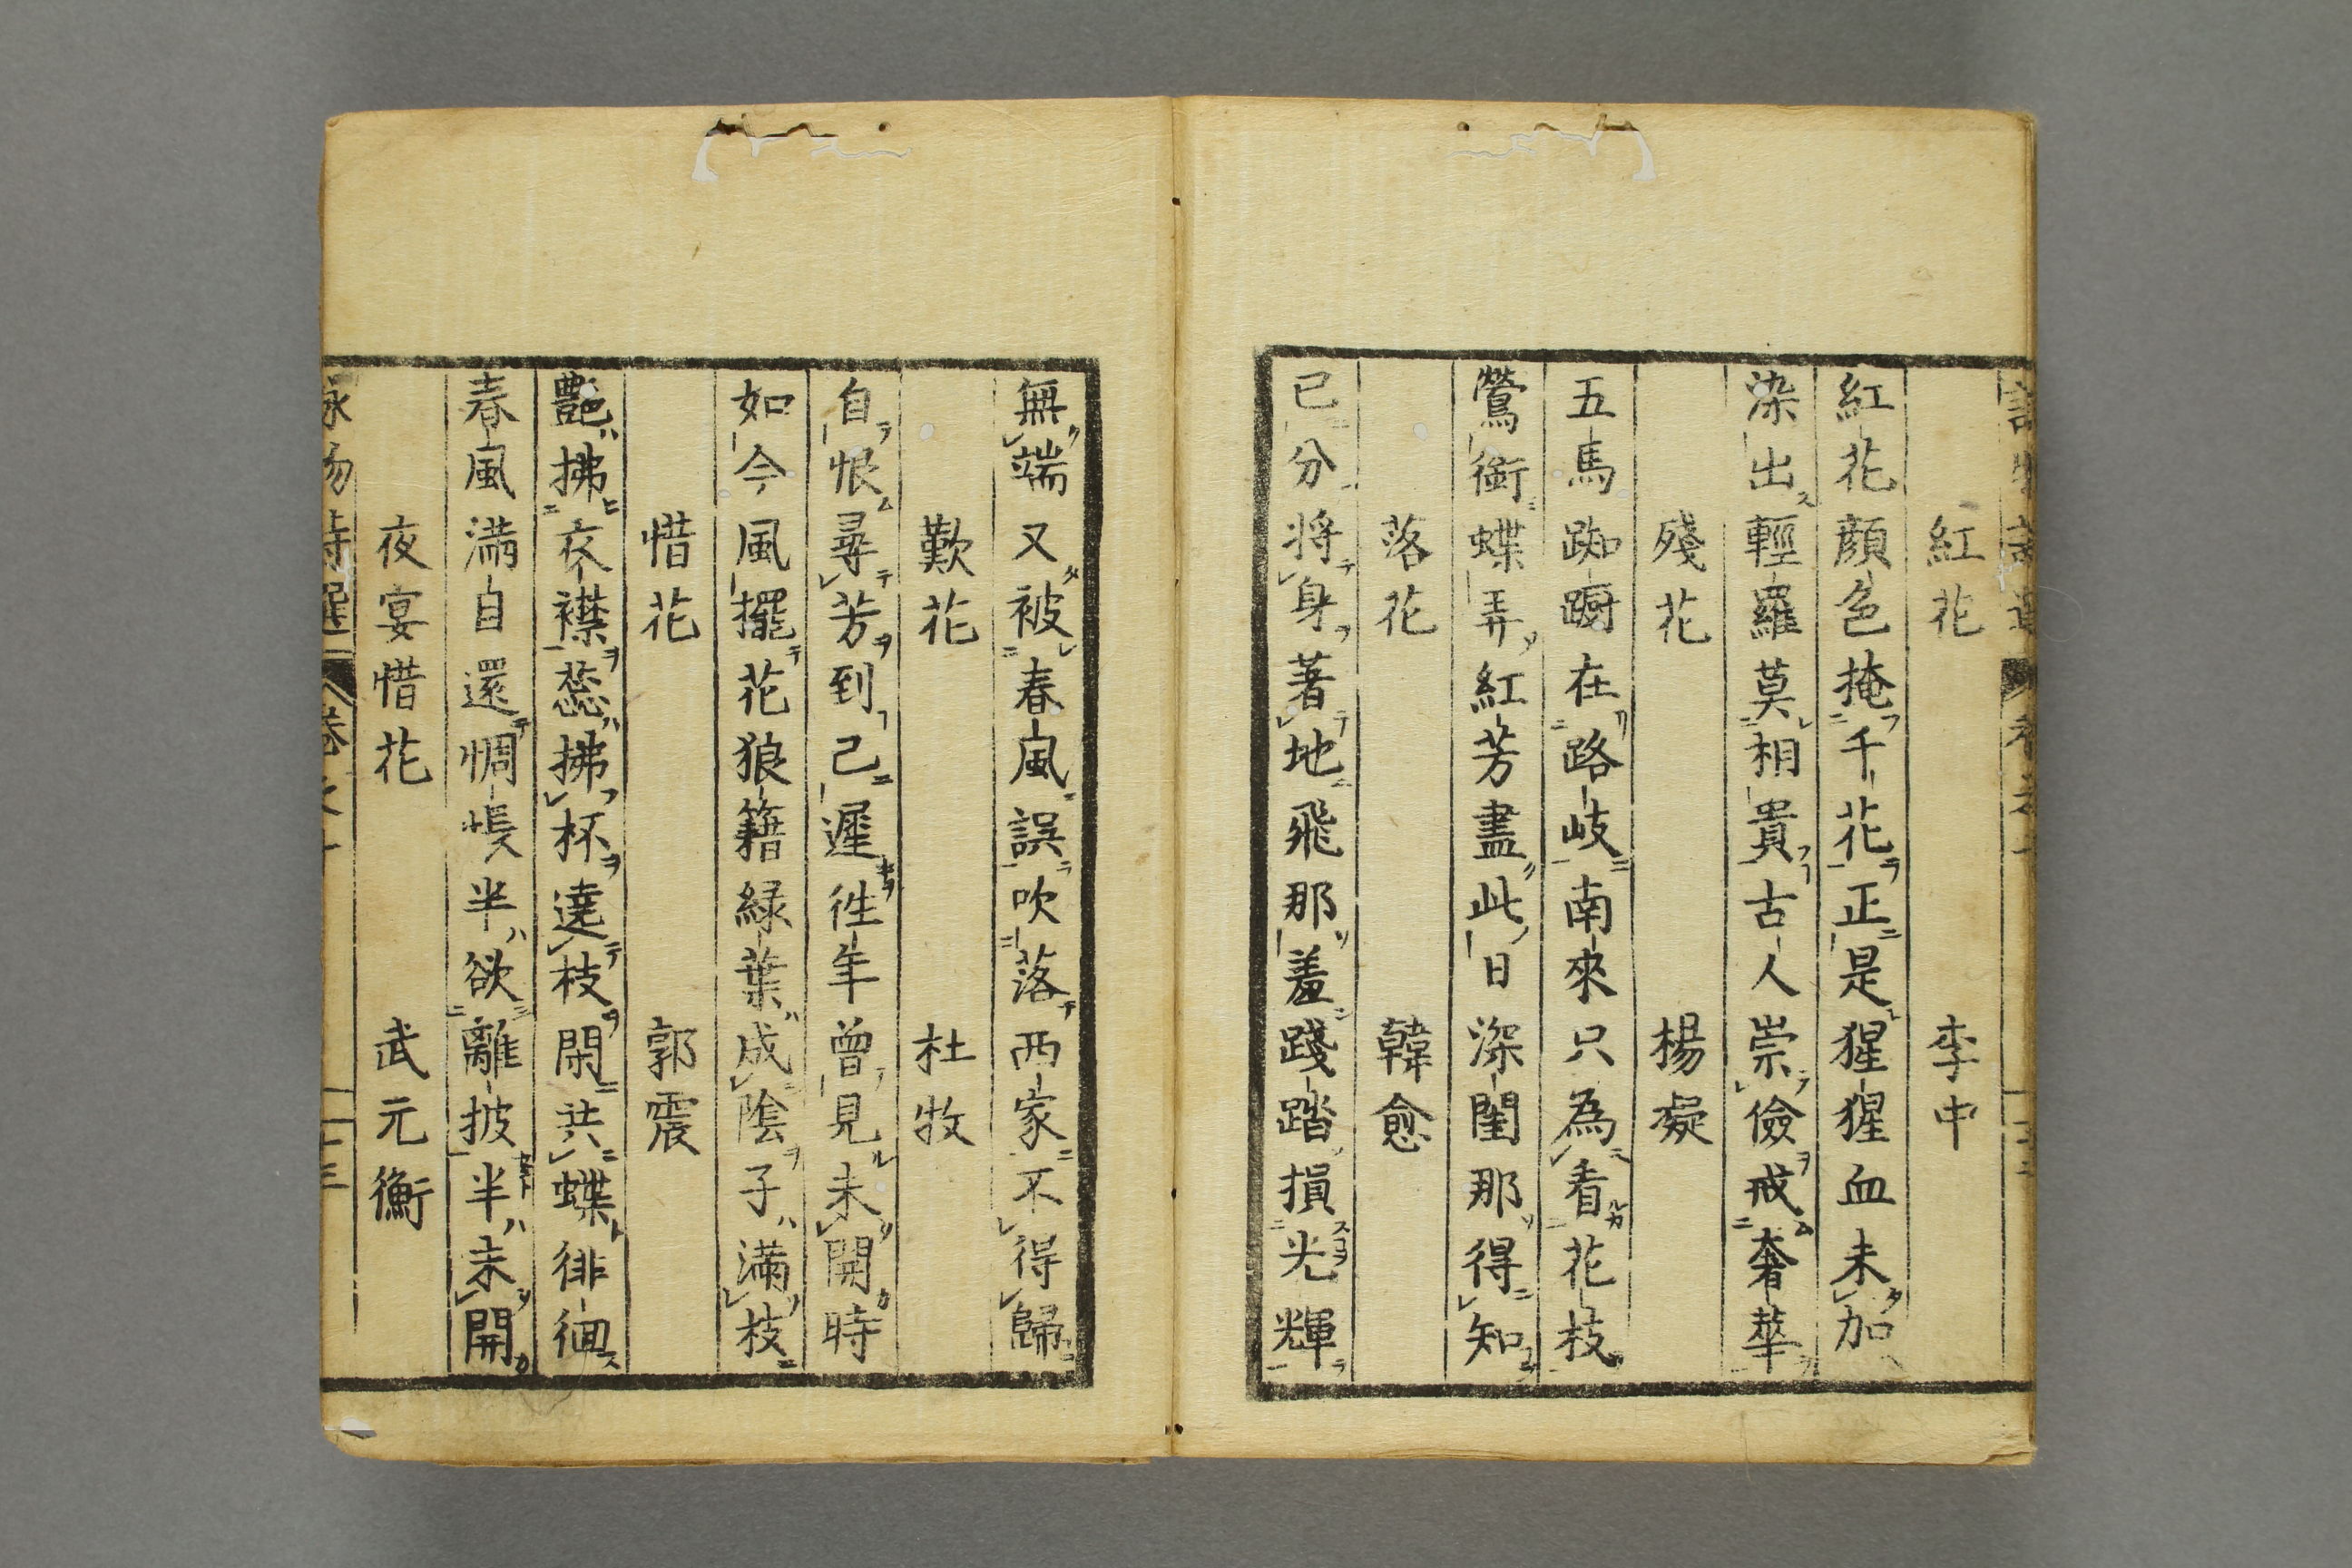 紅花 李中
紅花顏色掩千花正是猩猩血未加
染出輕羅莫相貴古人崇儉戒奢華
殘花 楊凝
五馬踟躕在路岐南來只為看花枝
鶯銜蝶弄紅芳盡此日深閨那得知
落花 韓愈
已分將身著地飛那羞踐踏損光輝
無端又被春風誤吹落西家不得歸
歎花 杜牧
自恨尋芳到已遲徃年曾見未開時
如今風擺花狼籍緑葉成陰子滿枝
惜花 郭震
艷拂衣襟蕊拂杯遶枝閑共蝶徘徊
春風滿目還惆悵半欲離披半未開
夜宴惜花 武元衡
詠物詩選 卷之